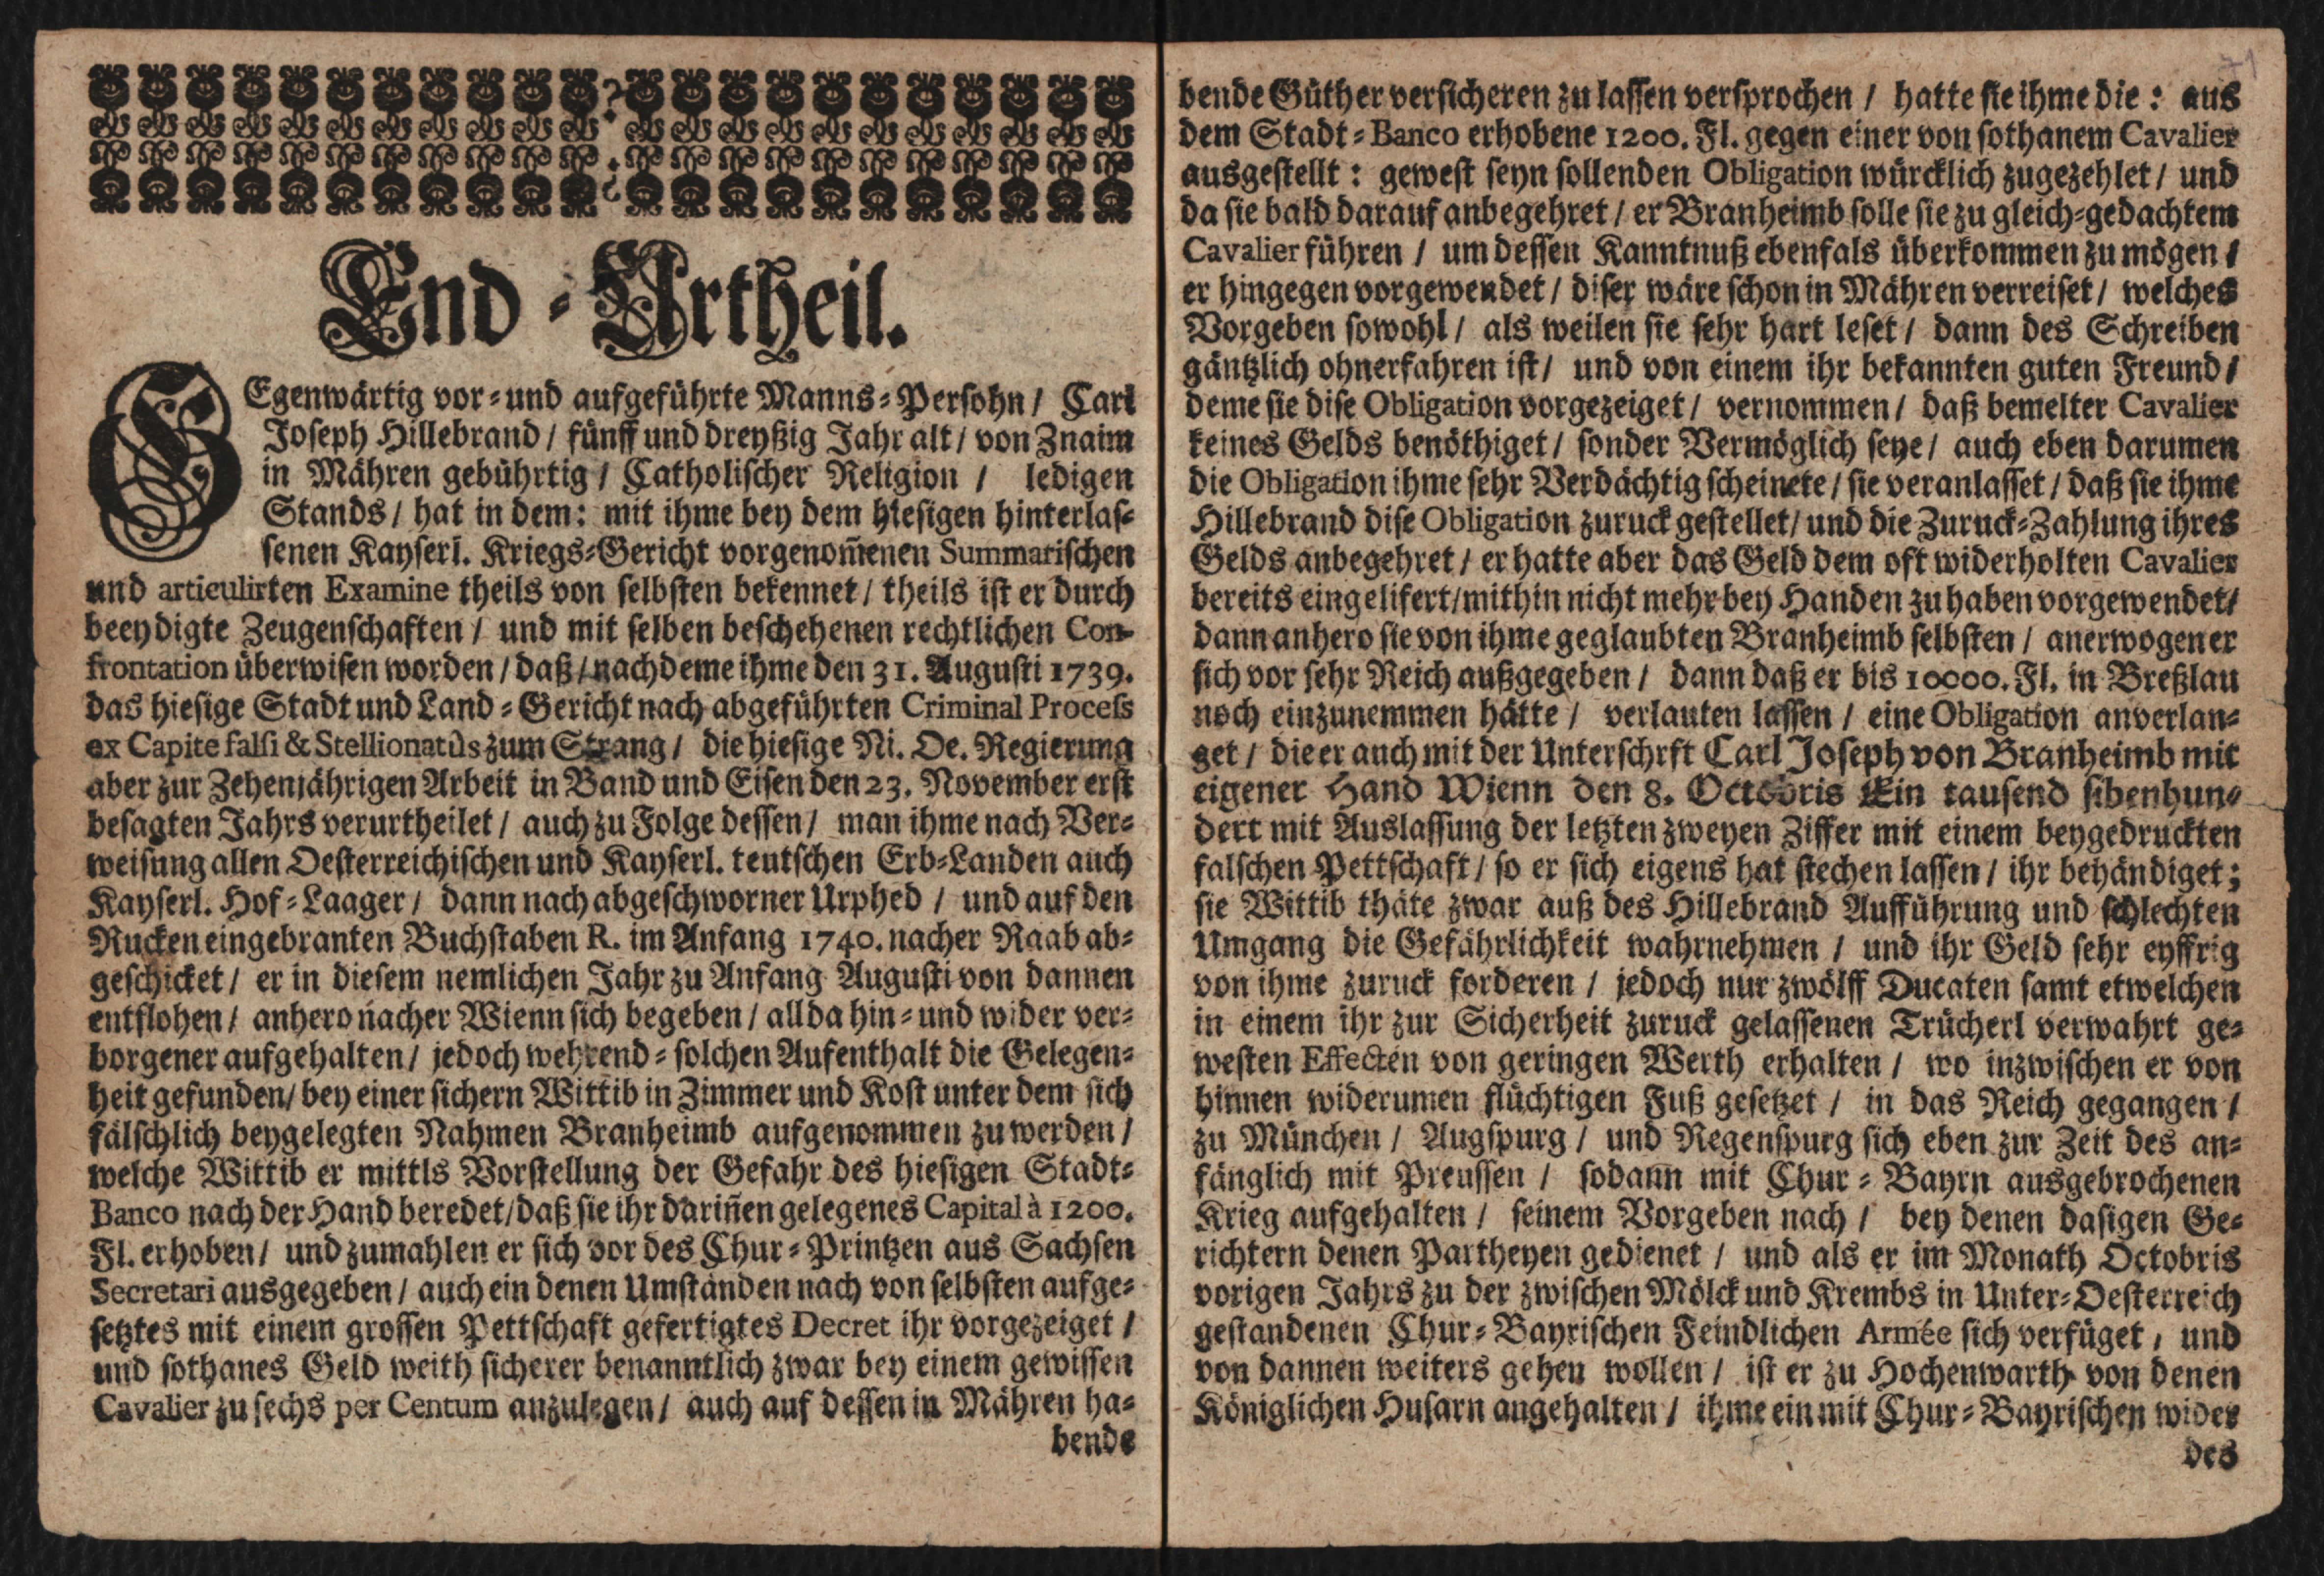 End-Urtheil.
GEgenwärtig vor-und aufgeführte Manns-Persohn / Carl
Joseph Hillebrand / fünff und dreyßig Jahr alt / von Znaim
in Mähren gebührtig / Catholischer Religion / ledigen
Stands / hat in dem: mit ihme bey dem hiesigen hinterlas-
senen Kayserl. Kriegs-Gericht vorgenom̃enen Summarischen
und articulirten Examine theils von selbsten bekennet / theils ist er durch
beeydigte Zeugenschaften / und mit selben beschehenen rechtlichen Con-
frontation überwisen worden / daß / nachdeme ihme den 31. Augusti 1739.
das hiesige Stadt und Land-Gericht nach abgeführten Criminal Process
ex Capite falsi & Stellionatûs zum Strang / die hiesige Ni. Oe. Regierung
aber zur Zehenjährigen Arbeit in Band und Eisen den 23. November erst
besagten Jahrs verurtheilet / auch zu Folge dessen / man ihme nach Ver-
weisung allen Oesterreichischen und Kayserl. teutschen Erb-Landen auch
Kayserl. Hof-Laager / dann nach abgeschworner Urphed / und auf den
Rucken eingebranten Buchstaben R. im Anfang 1740. nacher Raab ab-
geschicket / er in diesem nemlichen Jahr zu Anfang Augusti von dannen
entflohen / anhero nacher Wienn sich begeben / allda hin-und wider ver-
borgener aufgehalten / jedoch wehrend-solchen Aufenthalt die Gelegen-
heit gefunden / bey einer sichern Wittib in Zimmer und Kost unter dem sich
fälschlich beygelegten Nahmen Branheimb aufgenommen zu werden /
welche Wittib er mittls Vorstellung der Gefahr des hiesigen Stadt-
Banco nach der Hand beredet / daß sie ihr darin̄en gelegenes Capital à 1200.
Fl. erhoben / und zumahlen er sich vor des Chur-Printzen aus Sachsen
Secretari ausgegeben / auch ein denen Umständen nach von selbsten aufge-
setztes mit einem grossen Pettschaft gefertigtes Decret ihr vorgezeiget /
und sothanes Geld weith sicherer benanntlich zwar bey einem gewissen
Cavalier zu sechs per Centum anzulegen / auch auf dessen in Mähren ha-
bende
bende Güther versicheren zu lassen versprochen / hatte sie ihme die: aus
dem Stadt-Banco erhobene 1200. Fl. gegen einer von sothanem Cavalier
ausgestellt: gewest seyn sollenden Obligation würcklich zugezehlet / und
da sie bald darauf anbegehret / er Branheimb solle sie zu gleich-gedachtem
Cavalier führen / um dessen Kanntnuß ebenfals überkommen zu mögen /
er hingegen vorgewendet / diser wäre schon in Mähren verreiset / welches
Vorgeben sowohl / als weilen sie sehr hart leset / dann des Schreiben
gäntzlich ohnerfahren ist / und von einem ihr bekannten guten Freund /
deme sie dise Obligation vorgezeiget / vernommen / daß bemelter Cavalier
keines Gelds benöthiget / sonder Vermöglich seye / auch eben darumen
die Obligation ihme sehr Verdächtig scheinete / sie veranlasset / daß sie ihme
Hillebrand dise Obligation zuruck gestellet / und die Zuruck-Zahlung ihres
Gelds anbegehret / er hatte aber das Geld dem oft widerholten Cavalier
bereits eingelifert / mithin nicht mehr bey Handen zu haben vorgewendet /
dann anhero sie von ihme geglaubten Branheimb selbsten / anerwogen er
sich vor sehr Reich außgegeben / dann daß er bis 10000. Fl. in Breßlau
noch einzunemmen hätte / verlauten lassen / eine Obligation anverlan-
get / die er auch mit der Unterschrft Carl Joseph von Branheimb mit
eigener Hand Wienn den 8. Octobris Ein tausend sibenhun-
dert mit Auslassung der letzten zweyen Ziffer mit einem beygedruckten
falschen Pettschaft / so er sich eigens hat stechen lassen / ihr behändiget;
sie Wittib thäte zwar auß des Hillebrand Aufführung und schlechten
Umgang die Gefährlichkeit wahrnehmen / und ihr Geld sehr eyffrig
von ihme zuruck forderen / jedoch nur zwölff Ducaten samt etwelchen
in einem ihr zur Sicherheit zuruck gelassenen Trücherl verwahrt ge-
westen Effecten von geringen Werth erhalten / wo inzwischen er von
hinnen widerumen flüchtigen Fuß gesetzet / in das Reich gegangen /
zu München / Augspurg / und Regenspurg sich eben zur Zeit des an-
fänglich mit Preussen / sodann mit Chur-Bayrn ausgebrochenen
Krieg aufgehalten / seinem Vorgeben nach / bey denen dasigen Ge-
richtern denen Partheyen gedienet / und als er im Monath Octobris
vorigen Jahrs zu der zwischen Mölck und Krembs in Unter-Oesterreich
gestandenen Chur-Bayrischen Feindlichen Armée sich verfüget / und
von dannen weiters gehen wollen / ist er zu Hochenwarth von denen
Königlichen Husarn angehalten / ihme ein mit Chur-Bayrischen wider
des